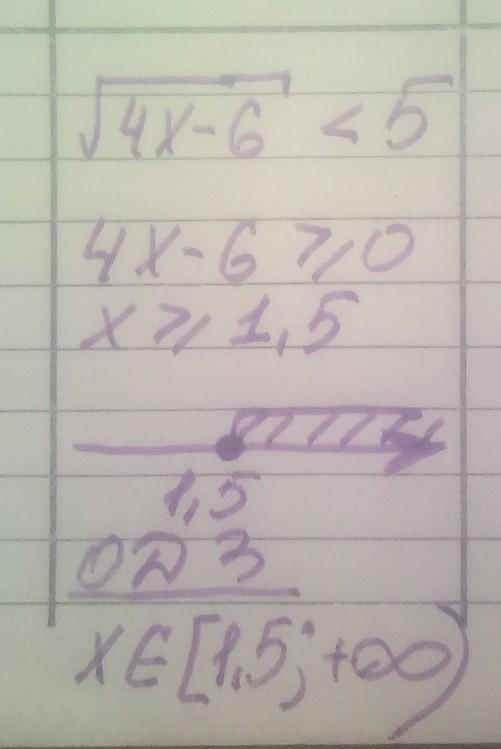 √4x-6 < 5
4x-6 ⩾ 0
x ⩾ 1,5
1,5
ОДЗ
x∈[1,5;+∞)